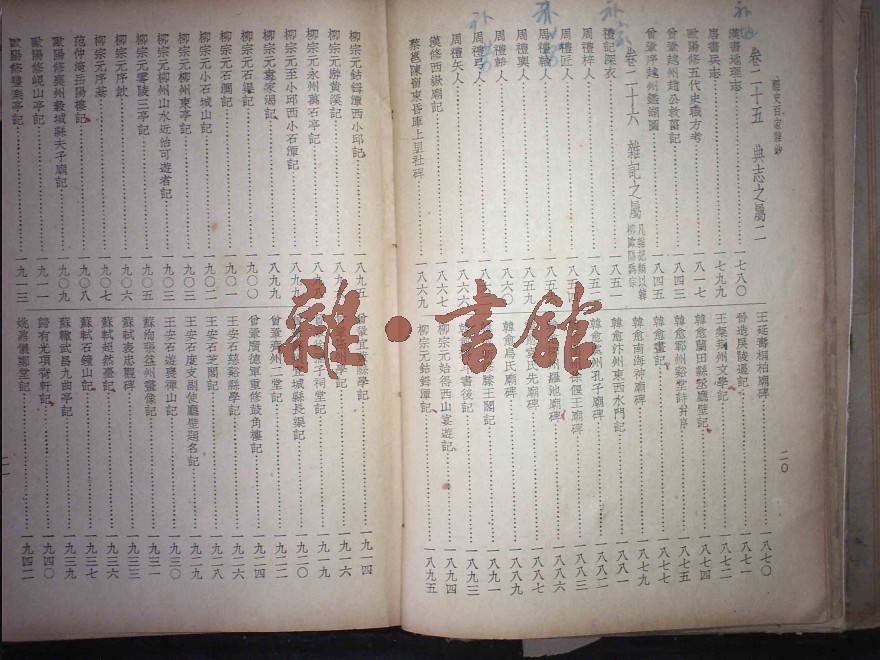 經史百家雜鈔
二〇
卷二十五 典志之屬二
漢書地理志 一七八〇
唐書兵志 一七九九
歐陽修五代史職方考 一八一七
曾鞏越州趙公救菑記 一八四三
曾鞏序越州鑑湖圖 一八四五
卷二十六 雜記之屬
禮記深衣 一八五
周禮梓人 一八五
周禮匠人 一八五四
周禮輪人
周禮輿人
周禮輈人 一八六〇
周禮弓人
周禮矢人 一八六六
漢修西嶽廟記 一八六七
蔡邕陳留東昏庫上里社碑 一八六九
王延壽桐柏廟碑 一八七〇
晉造戾陵遏記 一八七一
王粲荊州文學記 一八七二
韓愈藍田縣丞廳壁記 一八七四
韓愈鄆州谿堂詩并序 一八七五
韓愈畫記 一八七七
韓愈南海神廟碑 一八七九
韓愈汴州東西水門記 一八八一
韓愈處州孔子廟碑 一八八二
徐偃王廟碑 一八八三
柳州羅池廟碑 一八八六
袁氏先廟碑 一八八七
韓愈烏氏廟碑 一八八九
滕王閣記 一八九一
書後記 一八九二
柳宗元始得西山宴遊記 一八九四
柳宗元鈷鉧潭記 一八九五
柳宗元鈷鉧潭西小邱記 一八九五
柳宗元游黃溪記
柳宗元永州萬石亭記
柳宗元至小邱西小石潭記
柳宗元袁家渴記 一八九九
柳宗元石渠記 一九〇〇
柳宗元石澗記 一九〇一
柳宗元小石城山記 一九〇二
柳宗元柳州東亭記 一九〇三
柳宗元柳州山水近治可遊者記 一九〇三
柳宗元零陵三亭記 一九〇五
柳宗元序飲 一九〇六
柳宗元序棊 一九〇七
范仲淹岳陽樓記 一九〇八
歐陽修襄州穀城縣夫子廟記 一九〇九
歐陽修峴山亭記 一九一一
歐陽修豐樂亭記 一九一三
曾鞏宜黃縣學記 一九一四
學記 一九一六
子祠堂記 一九一九
城縣長渠記 一九二〇
曾鞏齊州二堂記 一九二二
曾鞏廣德軍重修鼓角樓記 一九二四
王安石慈谿縣學記 一九二六
王安石芝閣記 一九二八
王安石度支副使廳壁題名記 一九二九
王安石遊褒禪山記 一九三〇
蘇洵張益州畫像記 一九三一
蘇軾表忠觀碑 一九三三
蘇軾超然臺記 一九三六
蘇軾石鐘山記 一九三七
蘇轍武昌九曲亭記 一九三九
歸有光項脊軒記 一九四〇
姚鼐儀鄭堂記 一九四二
雜·書館